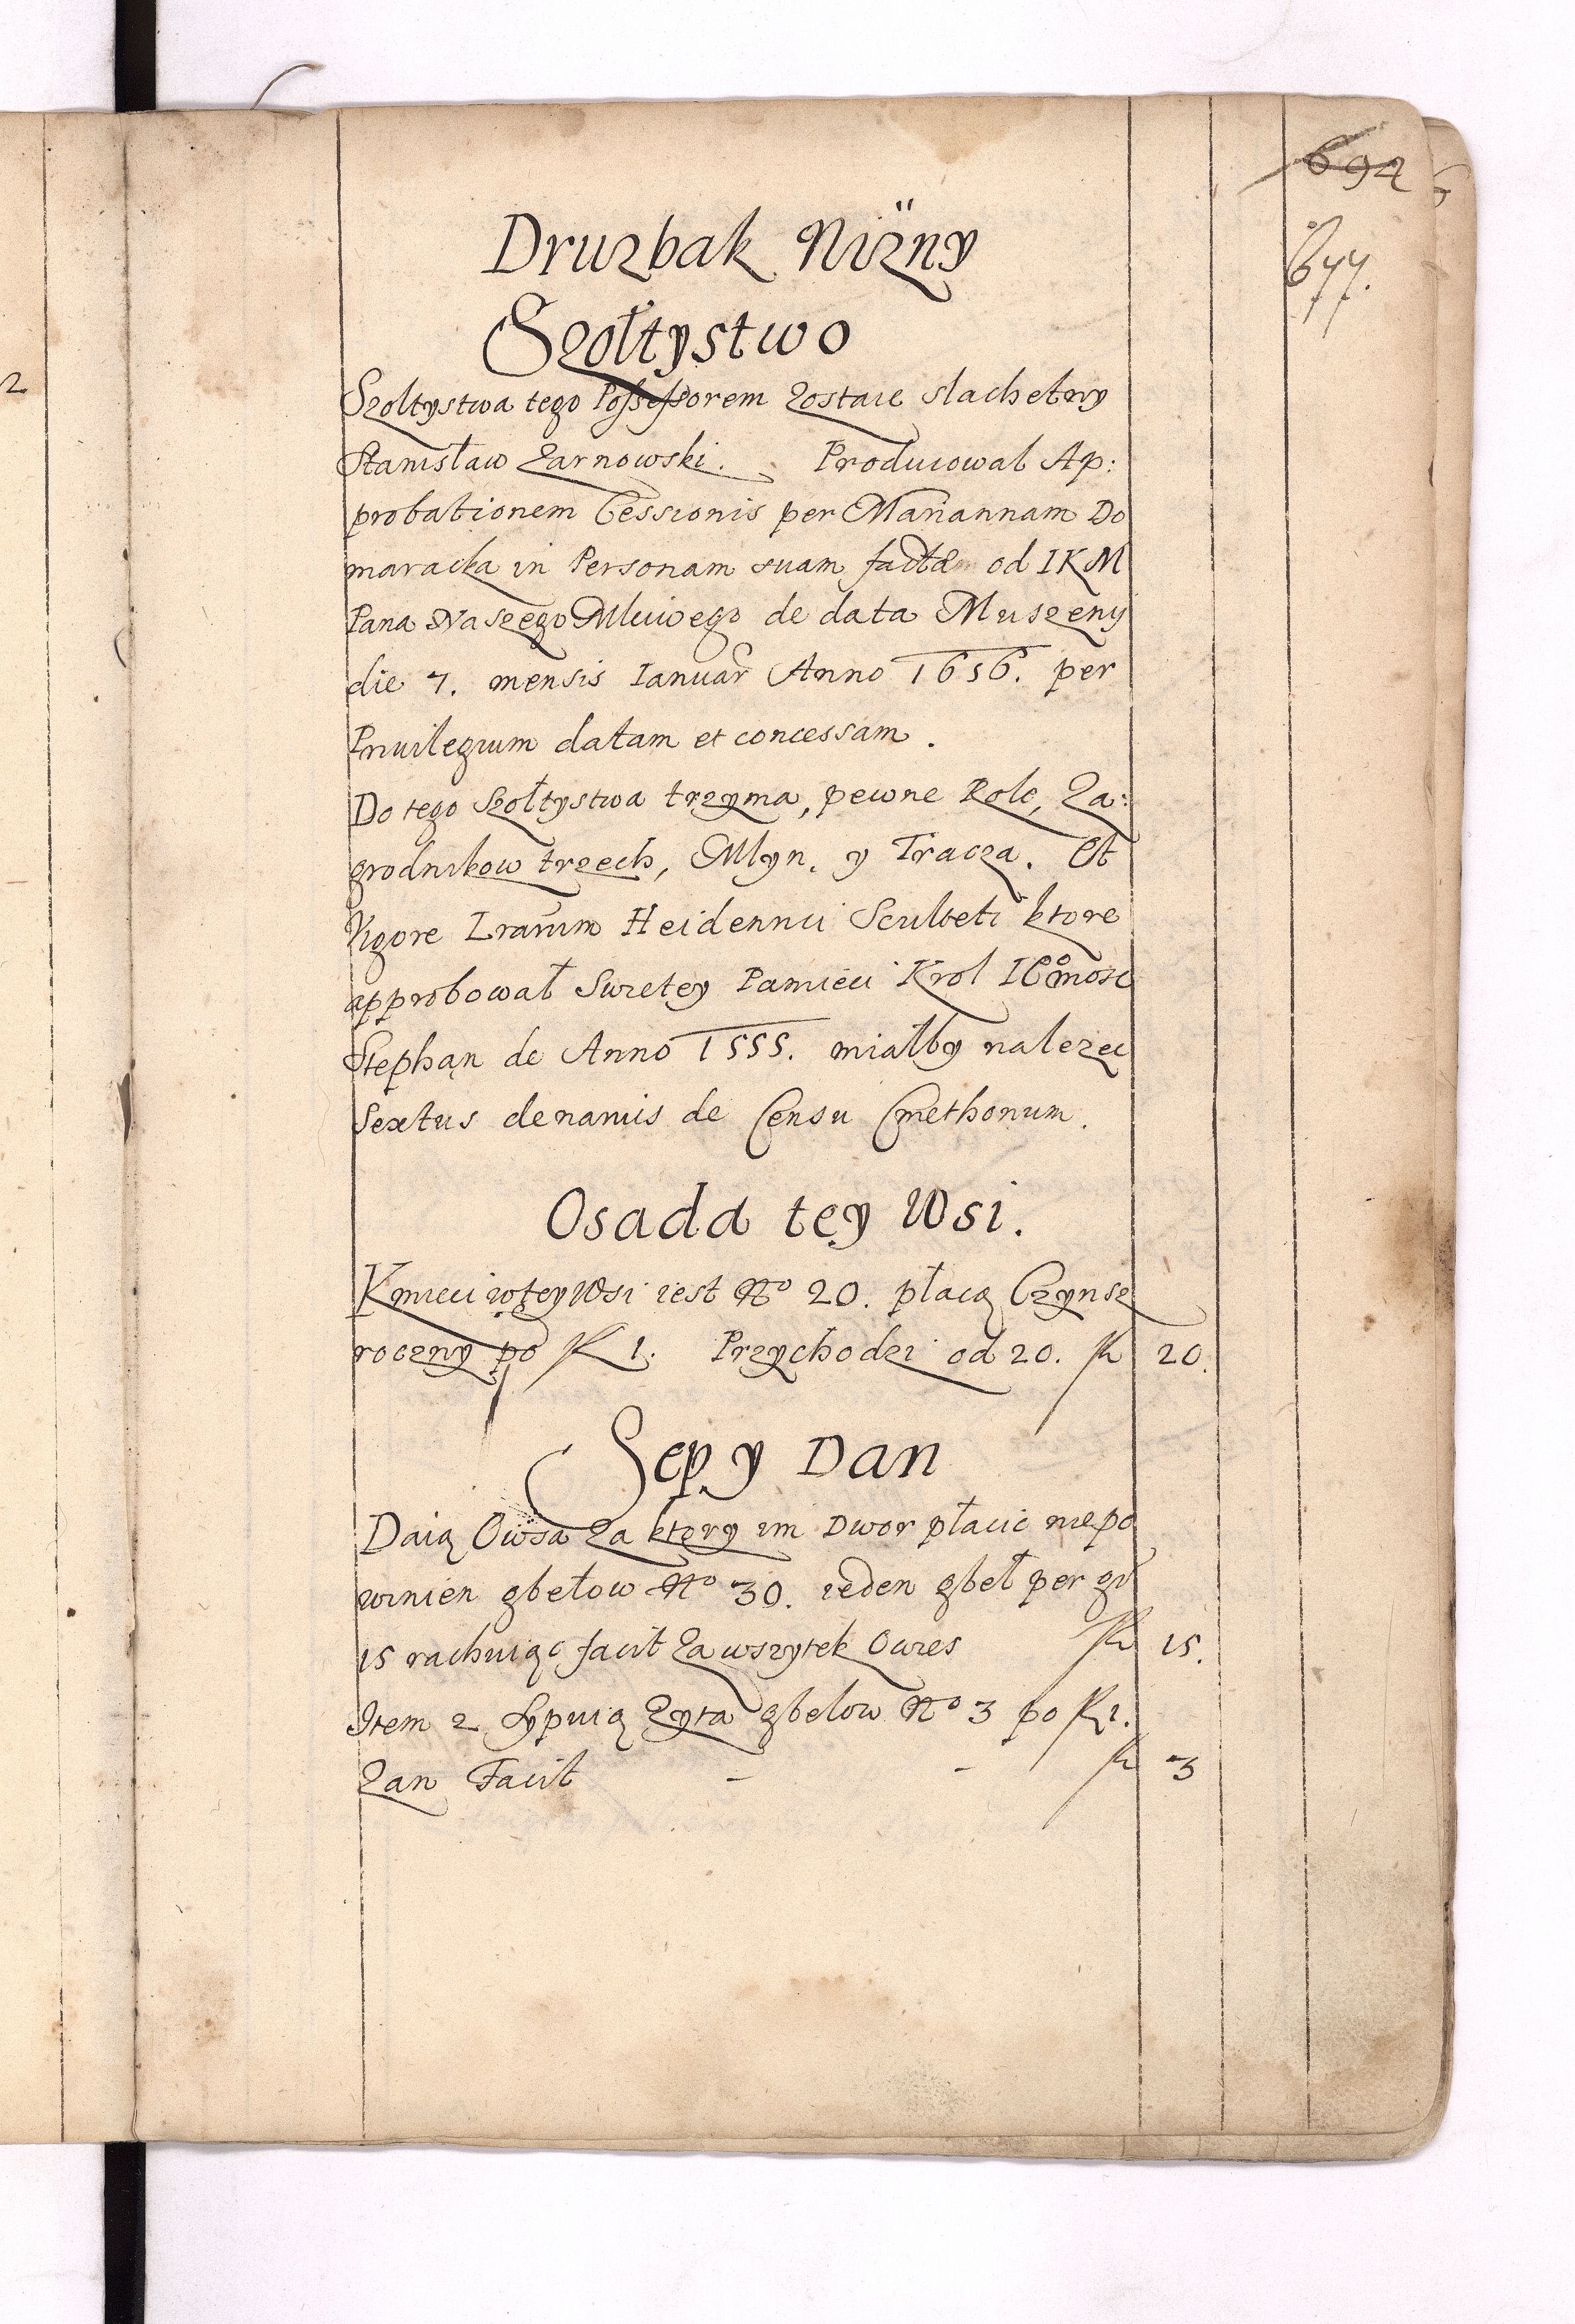 694
677.
Druzbak Niżny
Szołtystwo
Szoltystwa tego Possessorem zostaie slachetny
Stanisław Zarnowski. Producowal Ap:
probationem Cessionis per Mariannam Do
maracka in Personam suam factã od IKM
Pana Naszego Młciwego de data Muszeny
die 7. mensis Ianuar Anno 1656. per
Priuilegium datam et concessam.
Do tego Szołtystwa trzyma, pewne Role, Za:
grodnikow trzech, Młyn, y Tracza. Et
Vigore Lrarum Heidennici Sculteti ktore
approbował Swietey Pamieci Krol ICo mosc
Stephan de Anno 1555. miałby nalezec
Sextus denarius de Censu Cmethonum.
Osada tey Wsi.
Kmieci w tey Wsi iest No 20. płacą Czynsz
roczny po fl 1. Przychodzi od 20. fl 20.
Sep y Dan
Daią Owsa za ktory im Dwor płacic niepo
winien gbełow No 30. ieden gbeł per gr
15 rachuiąc facit za wszytek Owies fl 15.
Item 2 Sypuią Zyta gbelow No 3 po fl 1.
Zan Facit - - fl 3
2